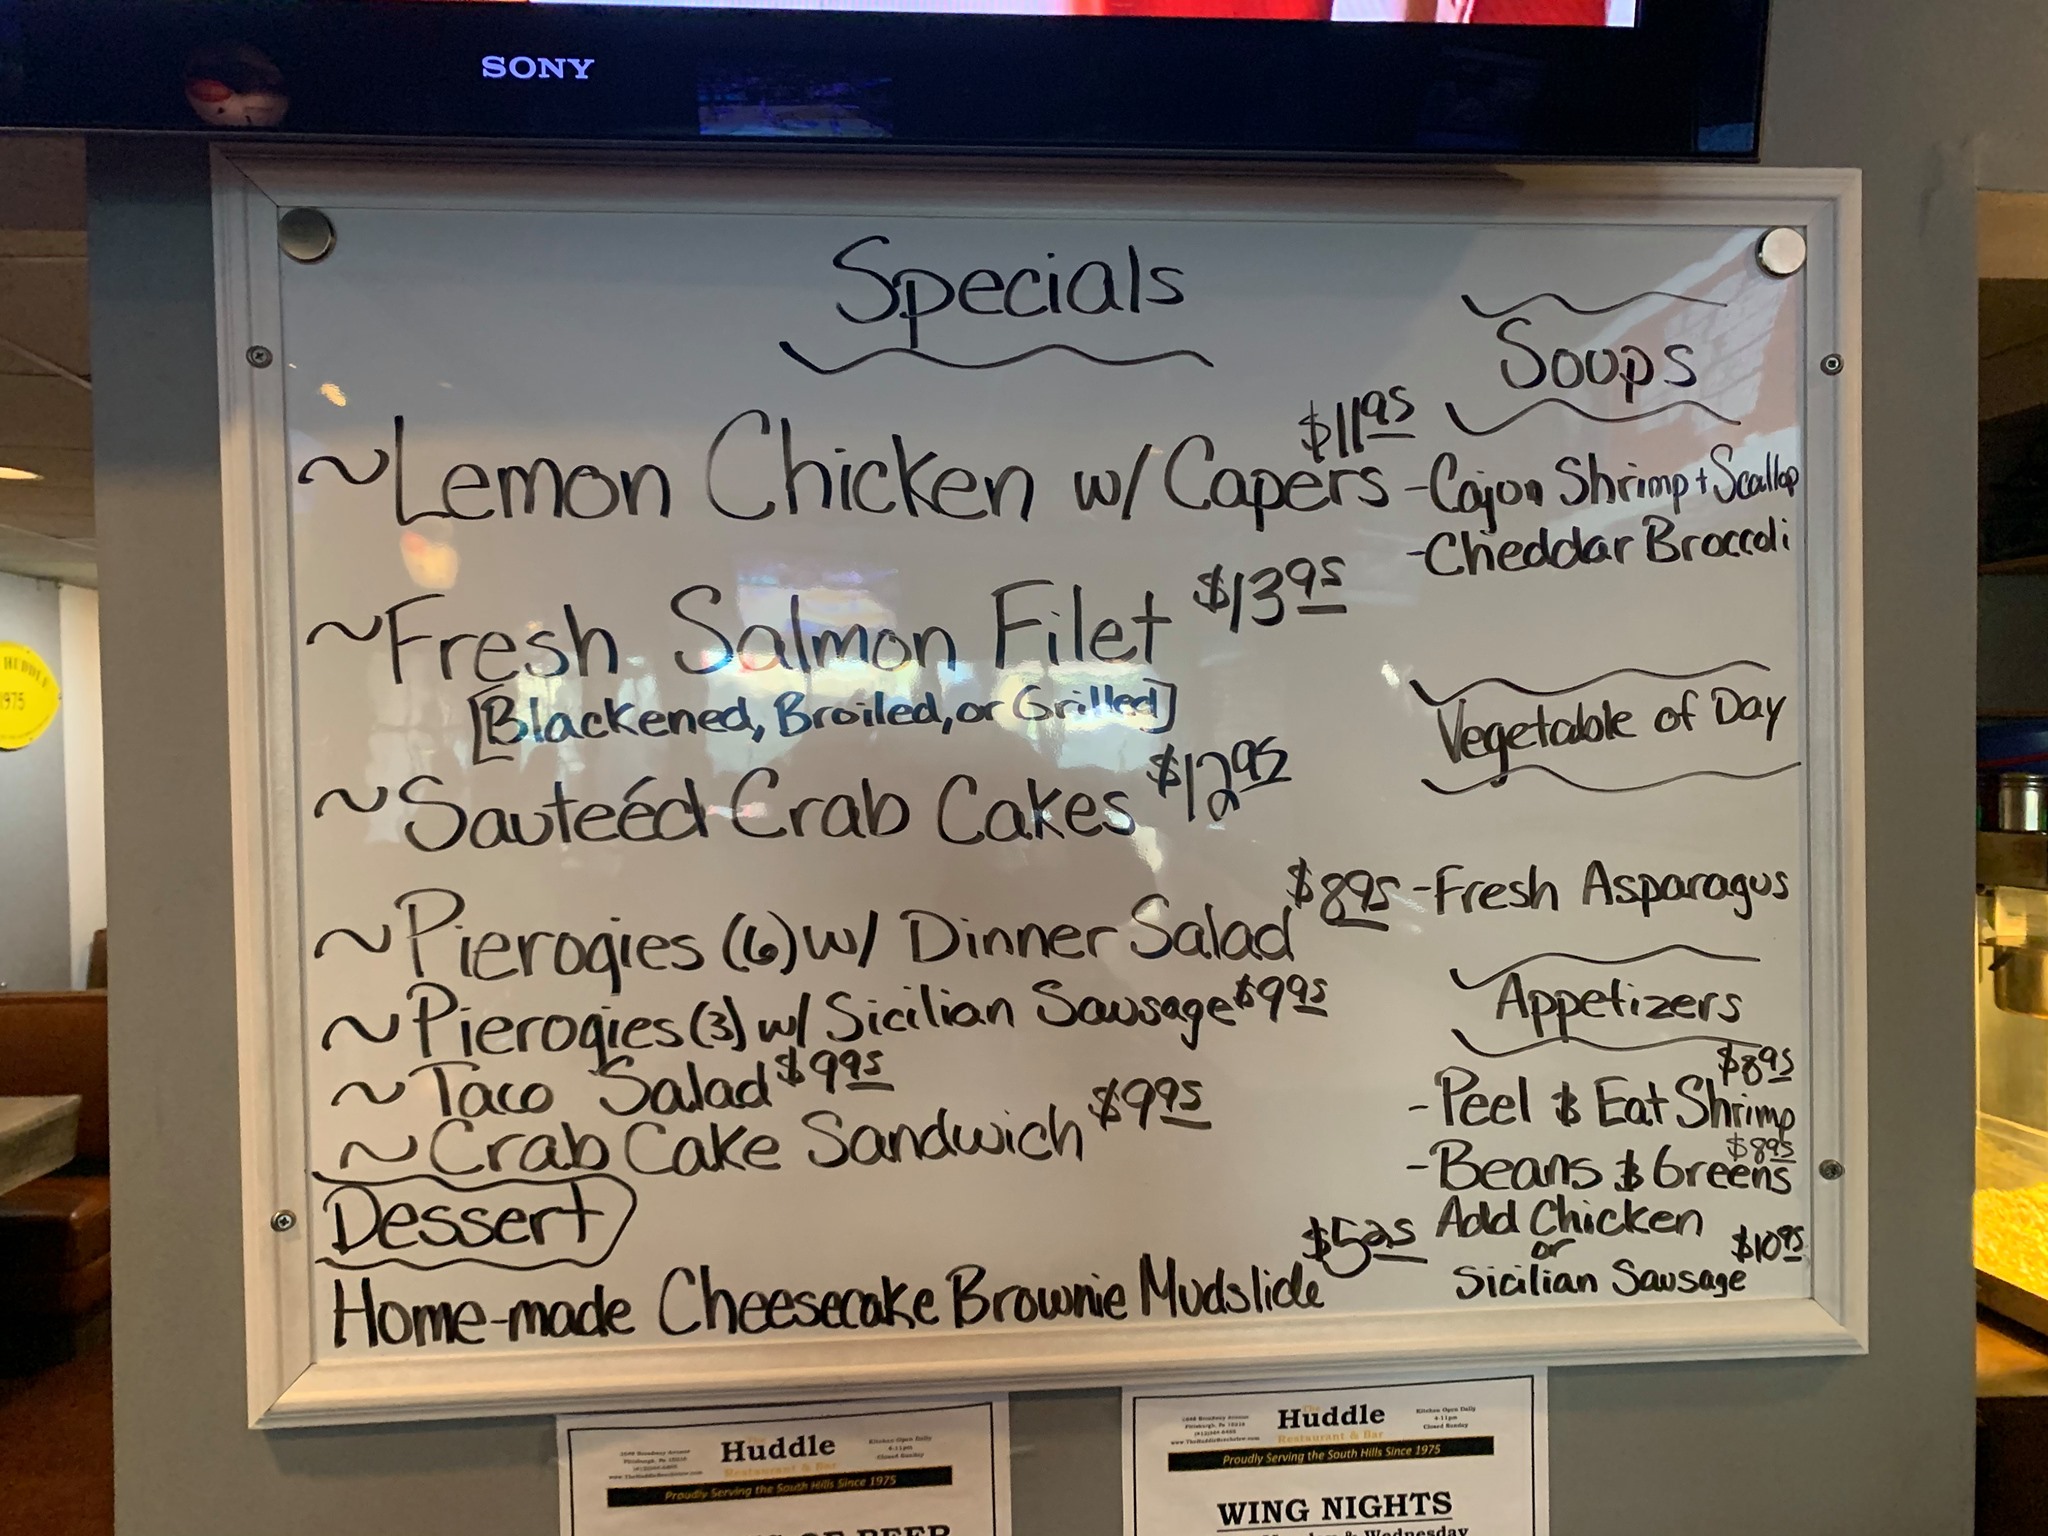 SONY
Specials
~Lemon Chicken w/ Capers $11.95
~Fresh Salmon Filet $13.95
[Blackened, Broiled, or Grilled]
~Sauteéd Crab Cakes $12.95
~Pierogies (6) w/ Dinner Salad $8.95
~Pierogies (3) w/ Sicilian Sausage $9.95
~Taco Salad $9.95
~Crab Cake Sandwich $9.95
Dessert
Home-made Cheesecake Brownie Mudslide $5.25
Soups
-Cajon Shrimp + Scallop
-Cheddar Broccoli
Vegetable of Day
-Fresh Asparagus
Appetizers
-Peel & Eat Shrimp $8.95
-Beans & Greens $8.95
Add Chicken
or
Sicilian Sausage $10.95
HUDDLE
1975
The
Huddle
Restaurant & Bar
Kitchen Open Daily
4-11pm
Closed Sunday
Proudly Serving the South Hills Since 1975
OF BEER
The
Huddle
Restaurant & Bar
Kitchen Open Daily
4-11pm
Closed Sunday
Proudly Serving the South Hills Since 1975
WING NIGHTS
& Wednesday